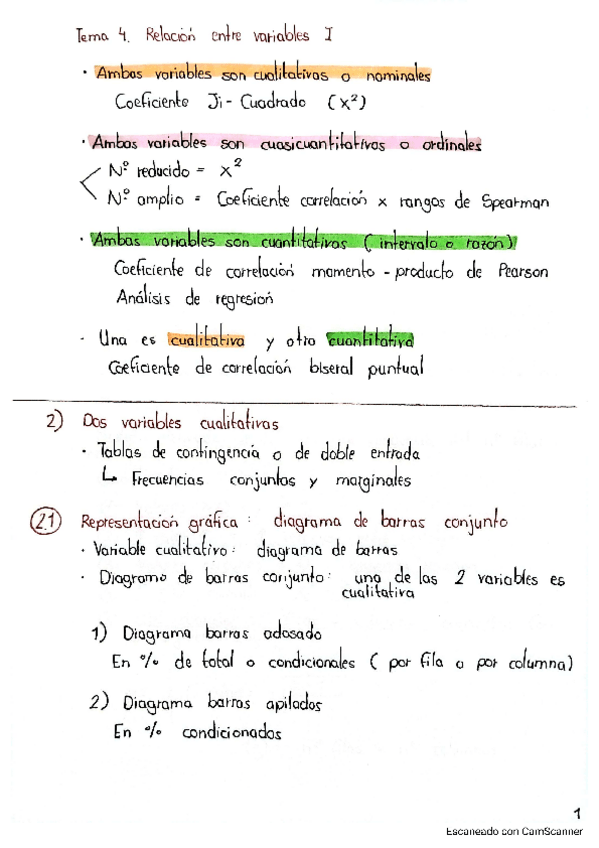 Tema 4. Relación entre variables I
· Ambas variables son cualitativas o nominales
Coeficiente Ji-Cuadrado (x²)
· Ambas variables son cuasicuantitativas o ordinales
Nº reducido = x²
Nº amplio = Coeficiente correlación x rangos de Spearman
· Ambas variables son cuantitativas (intervalo o razón)
Coeficiente de correlación momento-producto de Pearson
Análisis de regresión
· Una es cualitativa y otra cuantitativa
Coeficiente de correlación biseral puntual
2) Dos variables cualitativas
· Tablas de contingencia o de doble entrada
↳ Frecuencias conjuntas y marginales
2.1 Representación gráfica: diagrama de barras conjunto
· Variable cualitativa: diagrama de barras
· Diagrama de barras conjunto: una de las 2 variables es
cualitativa
1) Diagrama barras adosado
En % de total o condicionales (por fila o por columna)
2) Diagrama barras apilados
En % condicionados
1
Escaneado con CamScanner